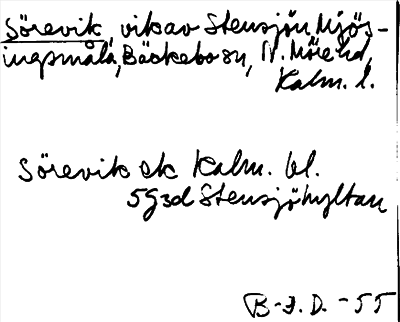 Sörevik, vik av Stensjön, Mjös-
ingsmåla, Bäckebo sn, N. Möre hd,
Kalm. l.
Sörevik ek Kalm. bl.
5g3d Stensjöhyltan
B-J. D. -55